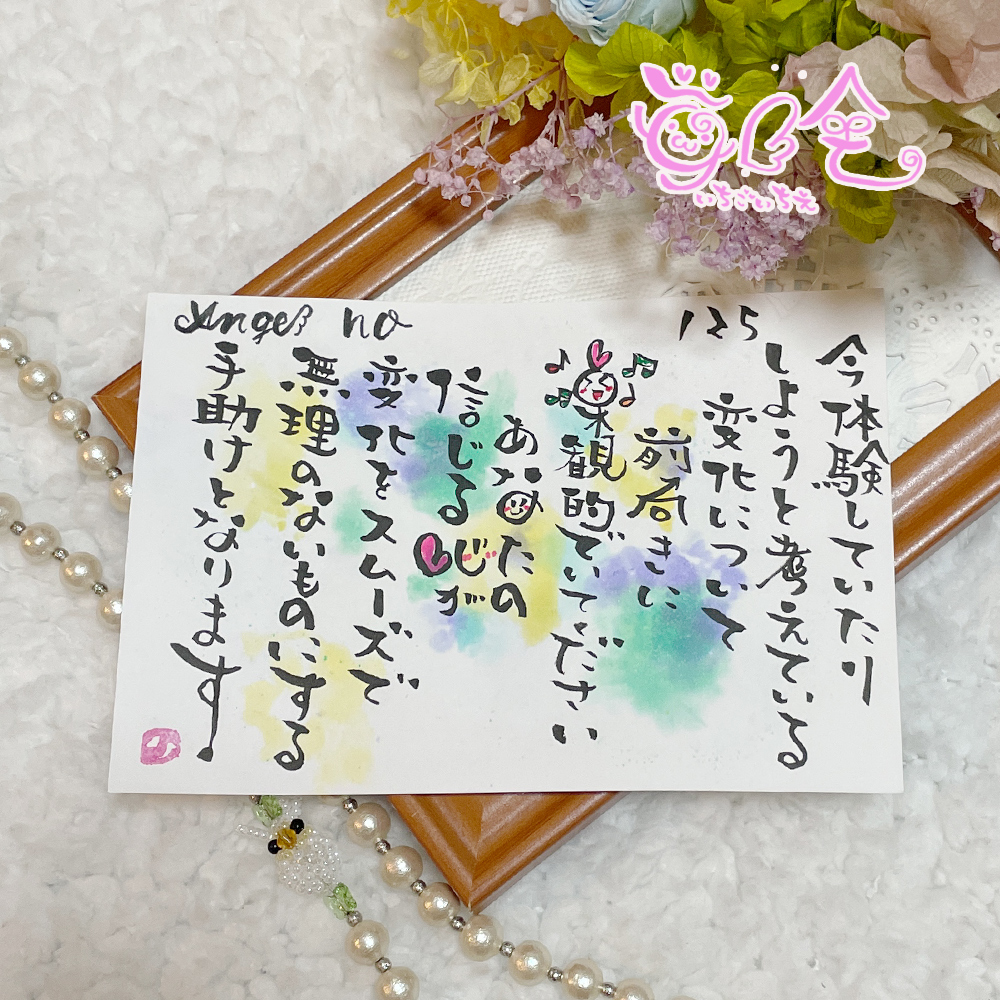 Angel no 125
今体験していたり
しようと考えている
変化について
前向きに
楽観的でいてください
あなたの
信じる心が
変化をスムーズで
無理のないものにする
手助けとなります。
いちごいちえ